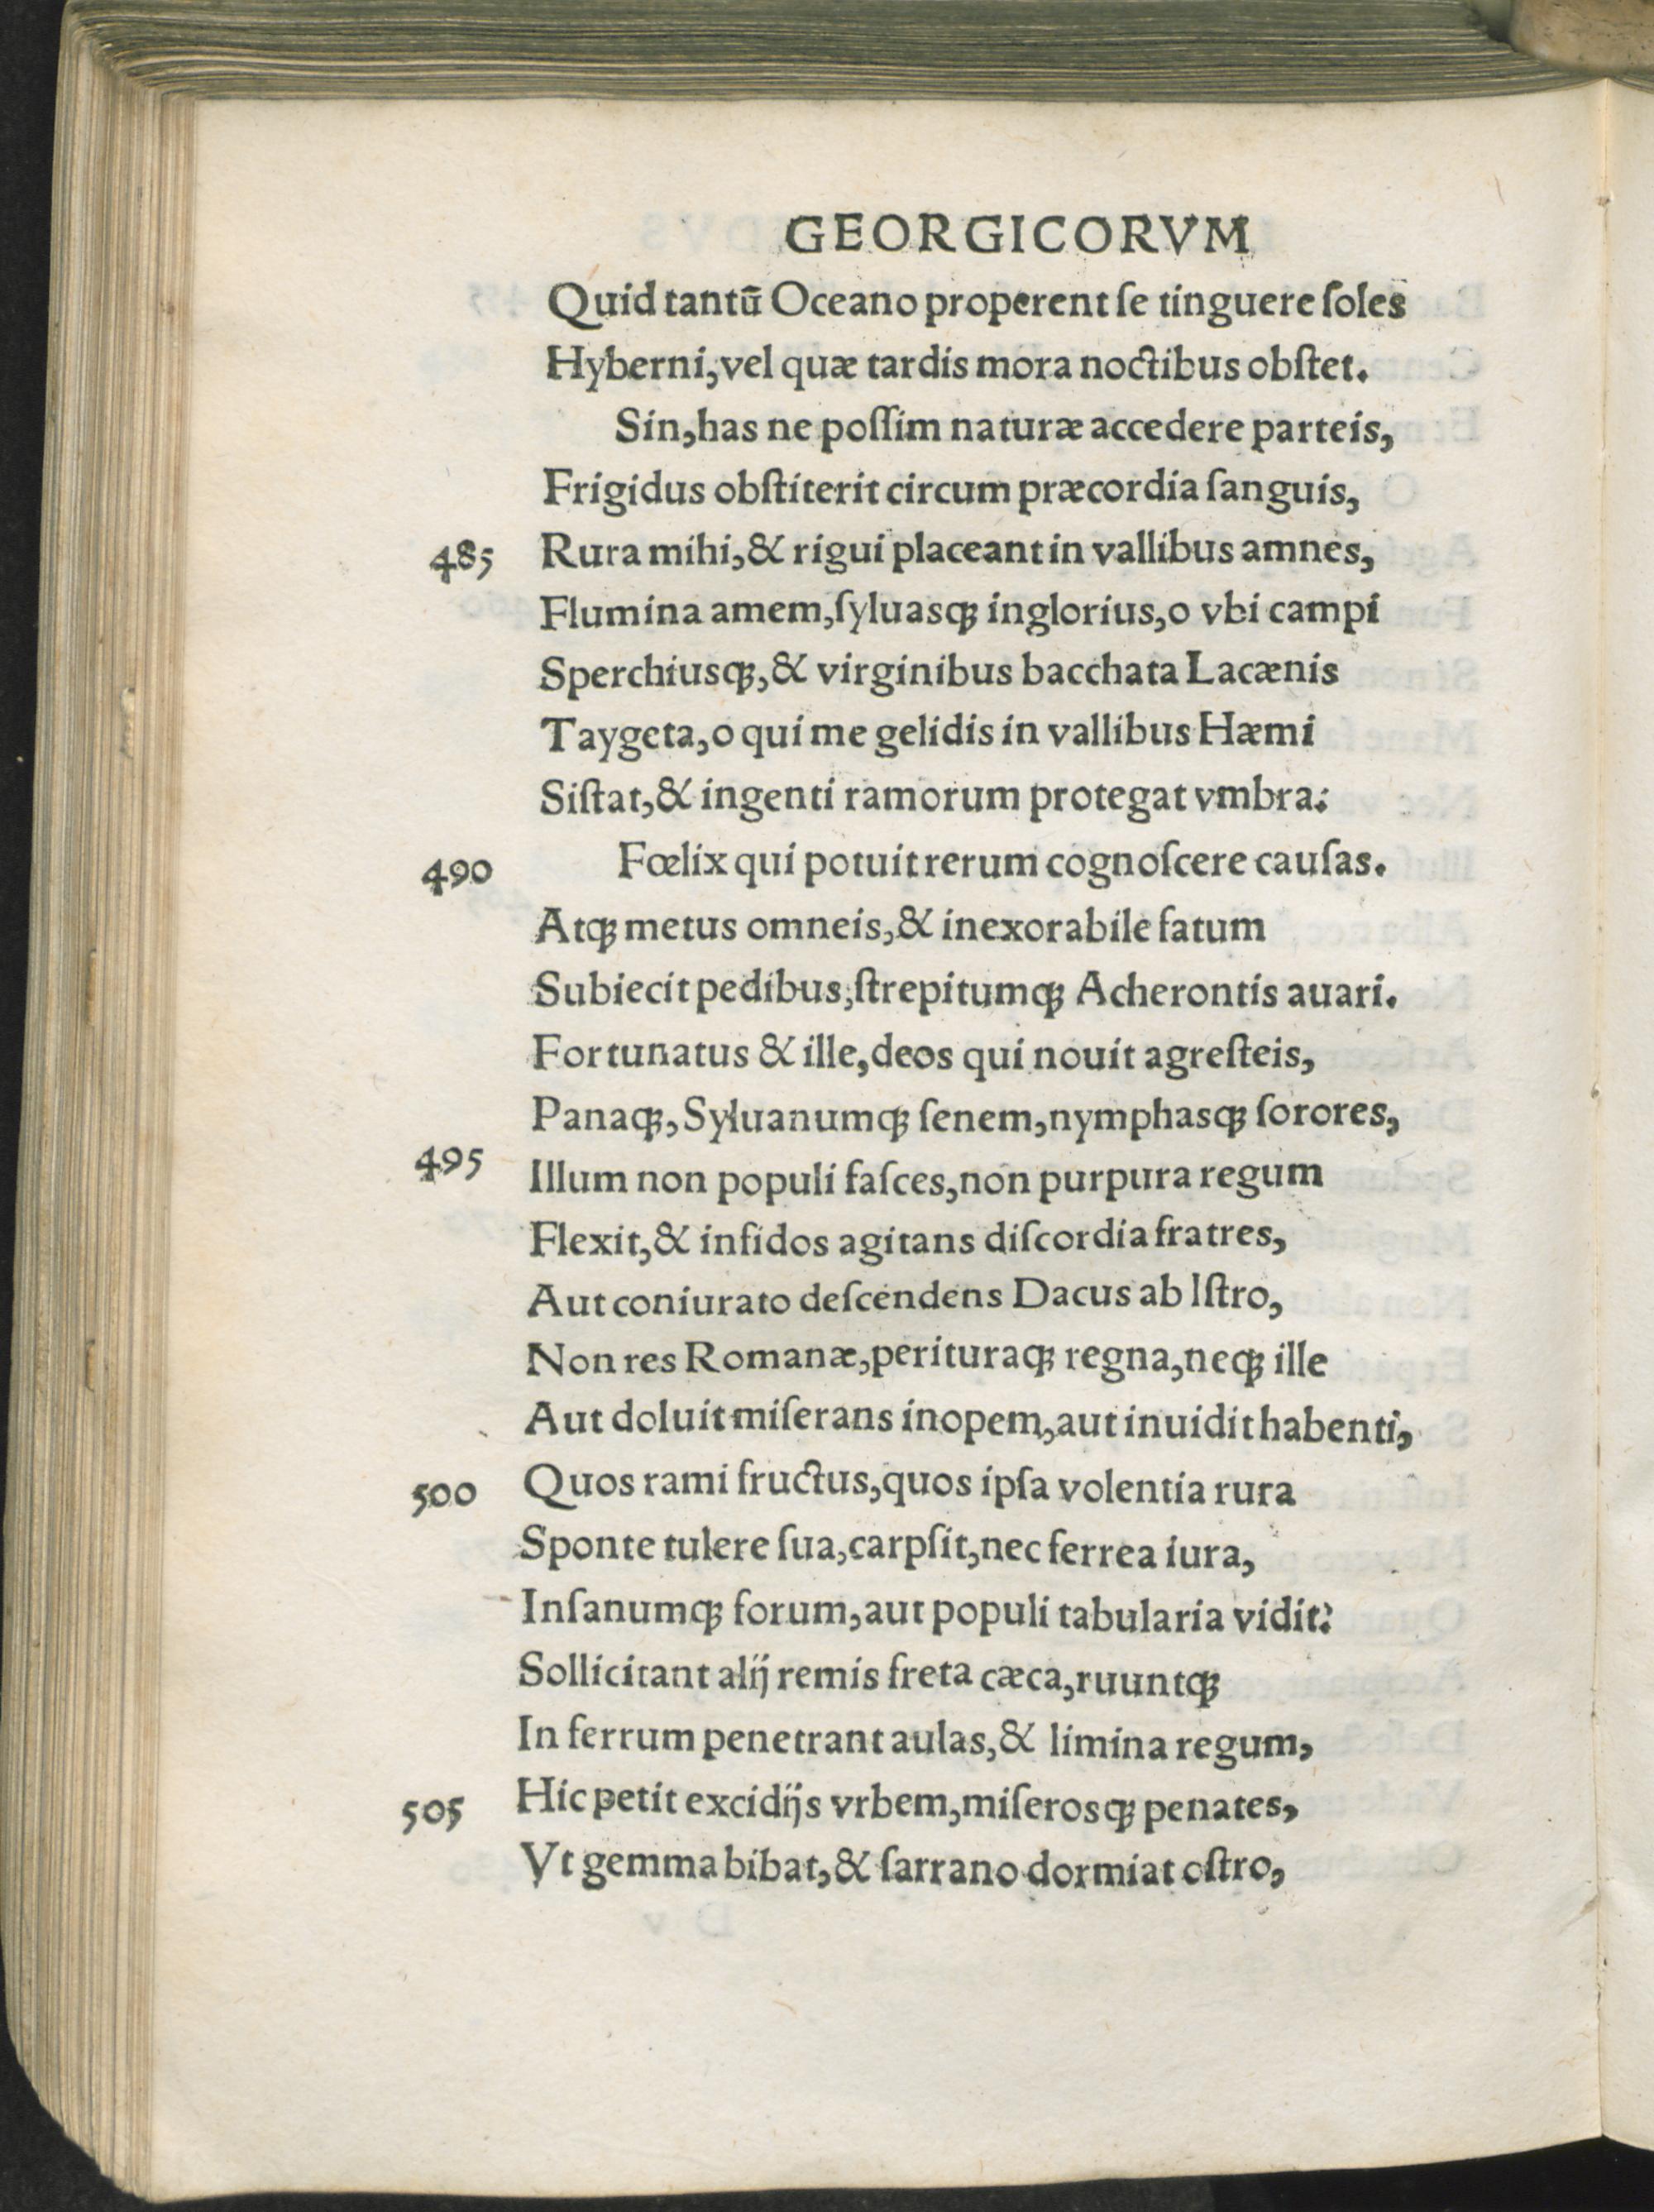 GEORGICORVM
Quid tantū Oceano properent ſe tinguere ſoles
Hyberni, vel quæ tardis mora noctibus obſtet.
Sin, has ne poſſim naturæ accedere parteis,
Frigidus obſtiterit circum præcordia ſanguis,
485 Rura mihi, & rigui placeant in vallibus amnes,
Flumina amem, ſyluasq; inglorius, o vbi campi
Sperchiusq;, & virginibus bacchata Lacænis
Taygeta, o qui me gelidis in vallibus Hæmi
Siſtat, & ingenti ramorum protegat vmbra?
490 Fœlix qui potuit rerum cognoſcere cauſas.
Atq; metus omneis, & inexorabile fatum
Subiecit pedibus, ſtrepitumq; Acherontis auari.
Fortunatus & ille, deos qui nouit agreſteis,
Panaq;, Syluanumq; ſenem, nymphasq; ſorores,
495 Illum non populi faſces, non purpura regum
Flexit, & infidos agitans diſcordia fratres,
Aut coniurato deſcendens Dacus ab Iſtro,
Non res Romanæ, perituraq; regna, neq; ille
Aut doluit miſerans inopem, aut inuidit habenti,
500 Quos rami fructus, quos ipſa volentia rura
Sponte tulere ſua, carpſit, nec ferrea iura,
Inſanumq; forum, aut populi tabularia vidit?
Sollicitant alij remis freta cæca, ruuntq;
In ferrum penetrant aulas, & limina regum,
505 Hic petit excidijs vrbem, miſerosq; penates,
Vt gemma bibat, & ſarrano dormiat oſtro,